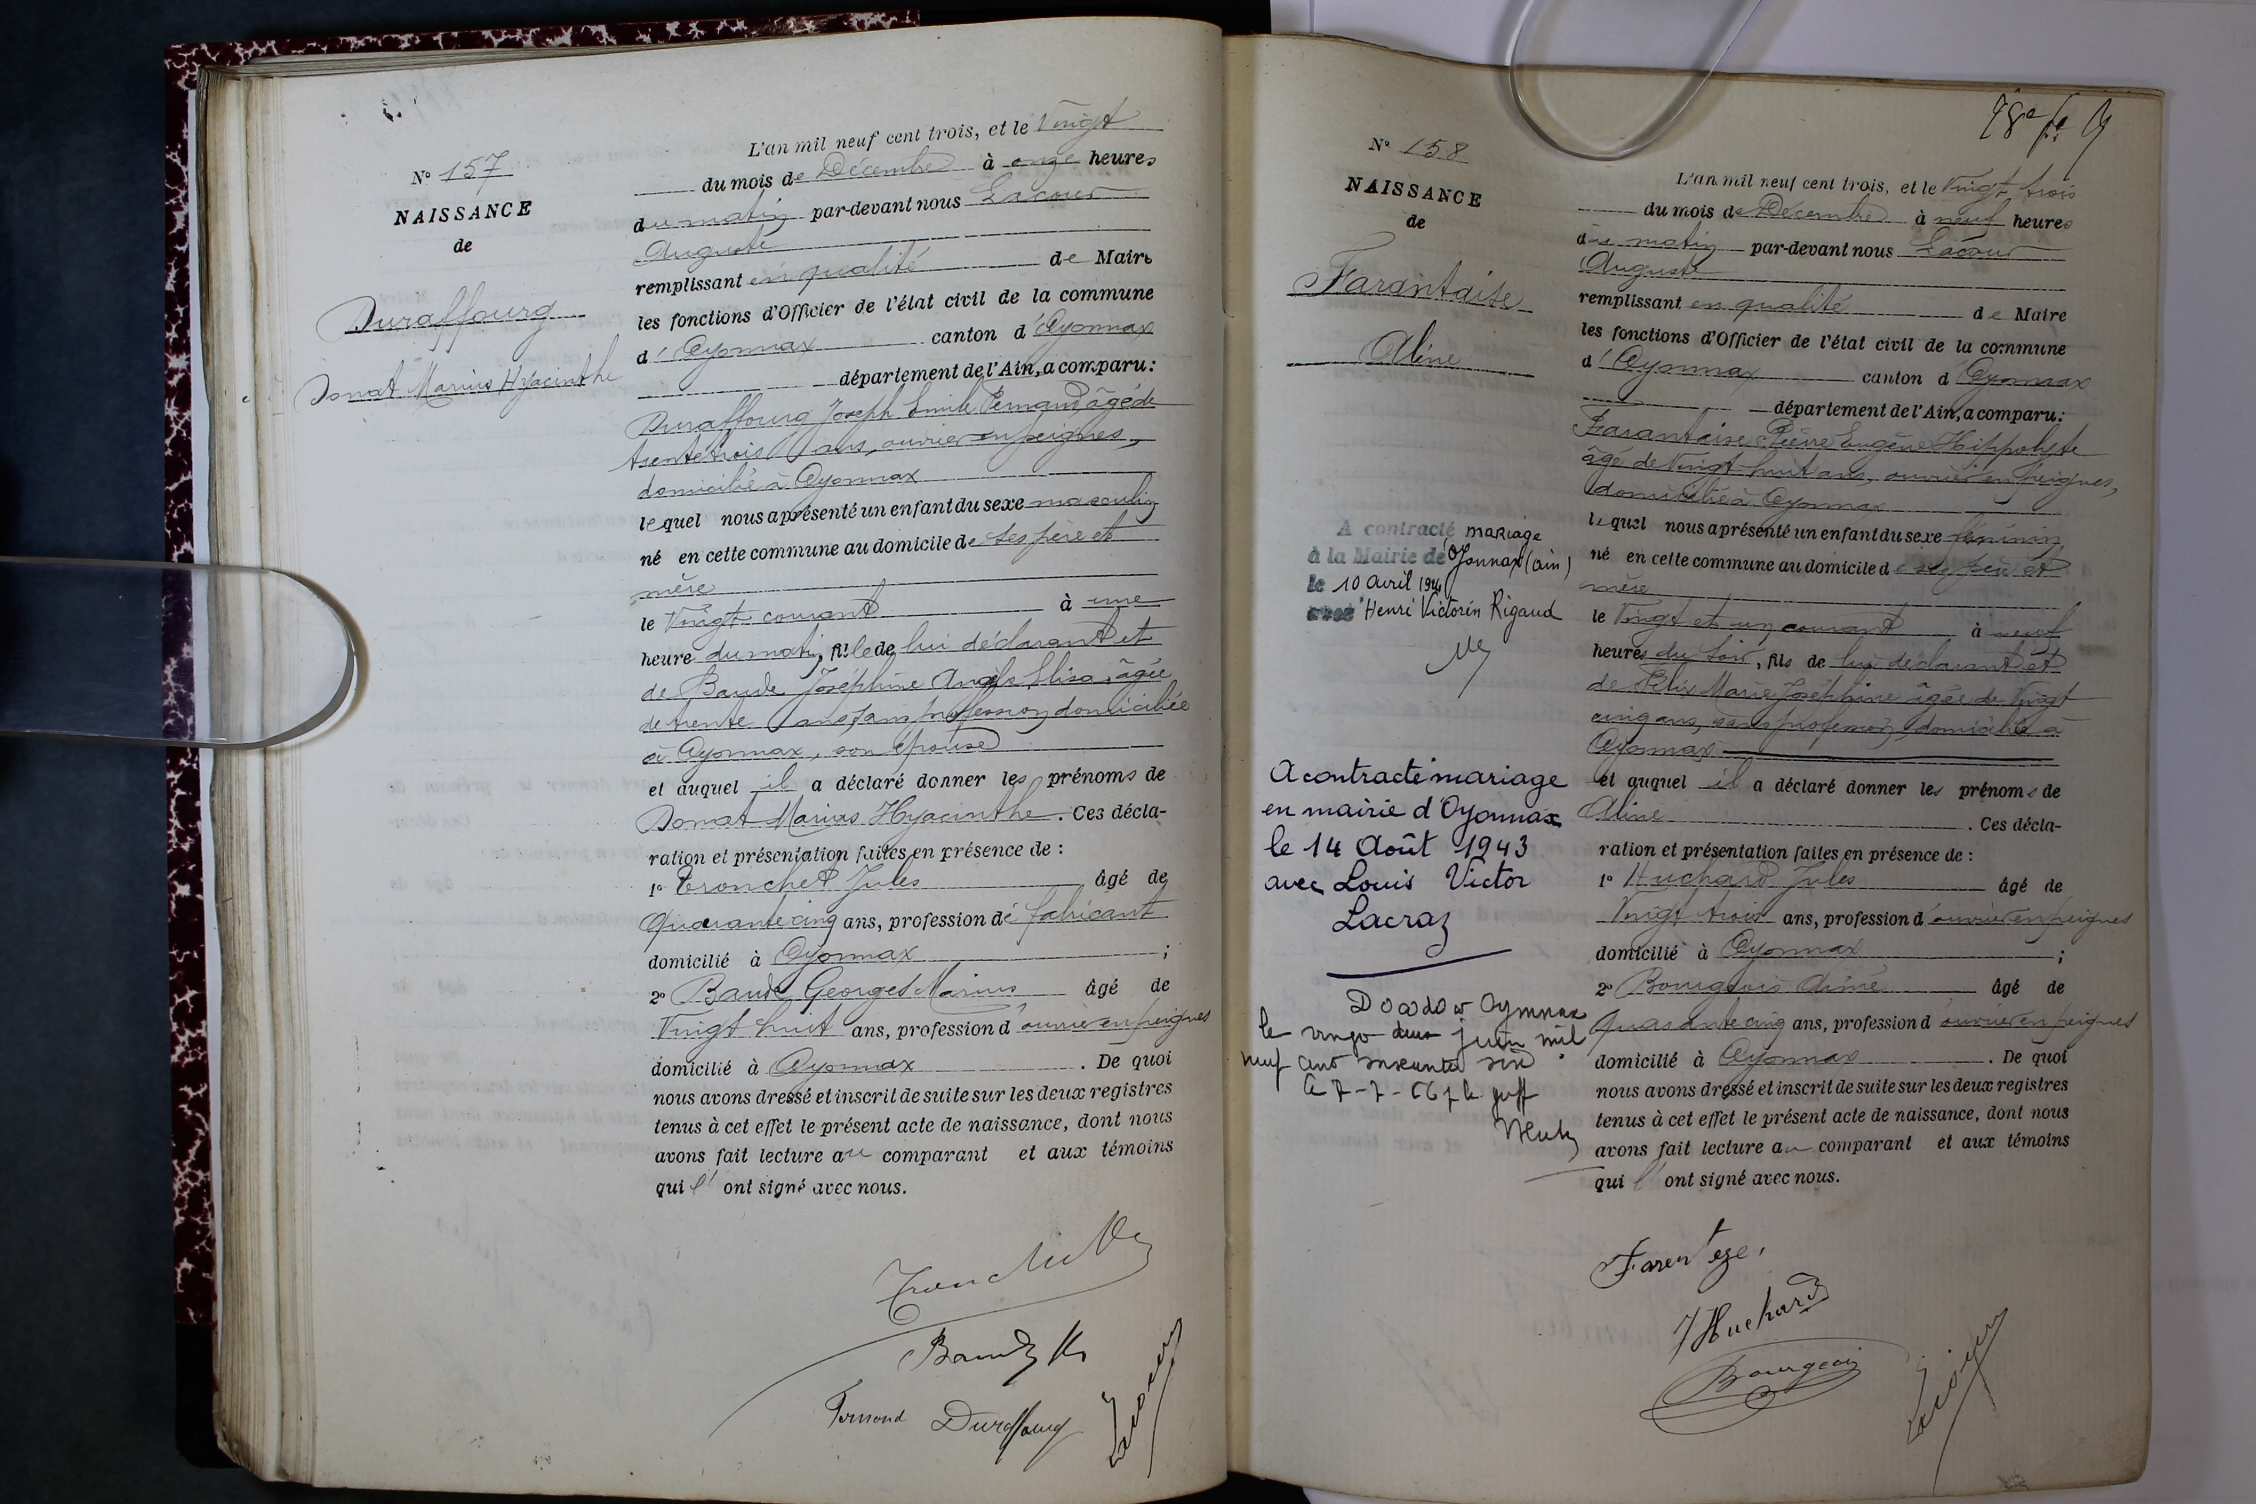 N° 157
NAISSANCE
de
Duraffourg
Donat Marius Hyacinthe
L'an mil neuf cent trois, et le Vingt
du mois de Décembre à onze heures
du matin par-devant nous Lacour
Auguste
remplissant en qualité de Maire
les fonctions d'Officier de l'état civil de la commune
d'Oyonnax canton d'Oyonnax
département de l'Ain, a comparu :
Duraffourg Joseph Emile Fernand âgé de
trente trois ans, ouvrier en peignes,
domicilié à Oyonnax
lequel nous a présenté un enfant du sexe masculin
né en cette commune au domicile de ses père et
mère
le Vingt courant à une
heure du matin, fils de lui déclarant et
de Baude Joséphine Angèle Elisa, âgée
de trente ans, sans profession, domiciliée
à Oyonnax, son épouse
et auquel il a déclaré donner les prénoms de
Donat Marius Hyacinthe. Ces décla-
ration et présentation faites en présence de :
1° Tronchet Jules âgé de
Quarante cinq ans, profession de fabricant
domicilié à Oyonnax ;
2° Baude Georges Marius âgé de
Vingt huit ans, profession d'ouvrier en peignes
domicilié à Oyonnax. De quoi
nous avons dressé et inscrit de suite sur les deux registres
tenus à cet effet le présent acte de naissance, dont nous
avons fait lecture au comparant et aux témoins
qui l' ont signé avec nous.
Baude
Fernand Duraffourg
Lacour
N° 158
NAISSANCE
de
Farantaise
Aline
A contracté mariage
à la Mairie de Oyonnax (ain)
le 10 avril
avec Henri Victorin Rigaud
A contracté mariage
en mairie d'Oyonnax
le 14 Août 1943
avec Louis Victor
Lacraz
Oyonnax
le juin mil
neuf
L'an mil neuf cent trois, et le Vingt trois
du mois de Décembre à neuf heures
du matin par-devant nous Lacour
Auguste
remplissant en qualité de Maire
les fonctions d'Officier de l'état civil de la commune
d'Oyonnax canton d Oyonnax
département de l'Ain, a comparu :
Farantaise Pierre Eugène Hippolyte
âgé de Vingt huit ans, ouvrier en peignes,
domicilié à Oyonnax
lequel nous a présenté un enfant du sexe féminin
né en cette commune au domicile de ses père et
mère
le Vingt et un courant à neuf
heures du soir, fils de lui déclarant et
de Felix Marie Joséphine âgée de Vingt
cinq ans, sans profession, domiciliée à
Oyonnax
et auquel il a déclaré donner les prénoms de
Aline. Ces décla-
ration et présentation faites en présence de :
1° Huchard Jules âgé de
Vingt trois ans, profession d'ouvrier en peignes
domicilié à Oyonnax ;
2° Bourgeois Aimé âgé de
Quarante cinq ans, profession d'ouvrier en peignes
domicilié à Oyonnax. De quoi
nous avons dressé et inscrit de suite sur les deux registres
tenus à cet effet le présent acte de naissance, dont nous
avons fait lecture au comparant et aux témoins
qui l' ont signé avec nous.
J Huchard
Bourgeois
Lacour